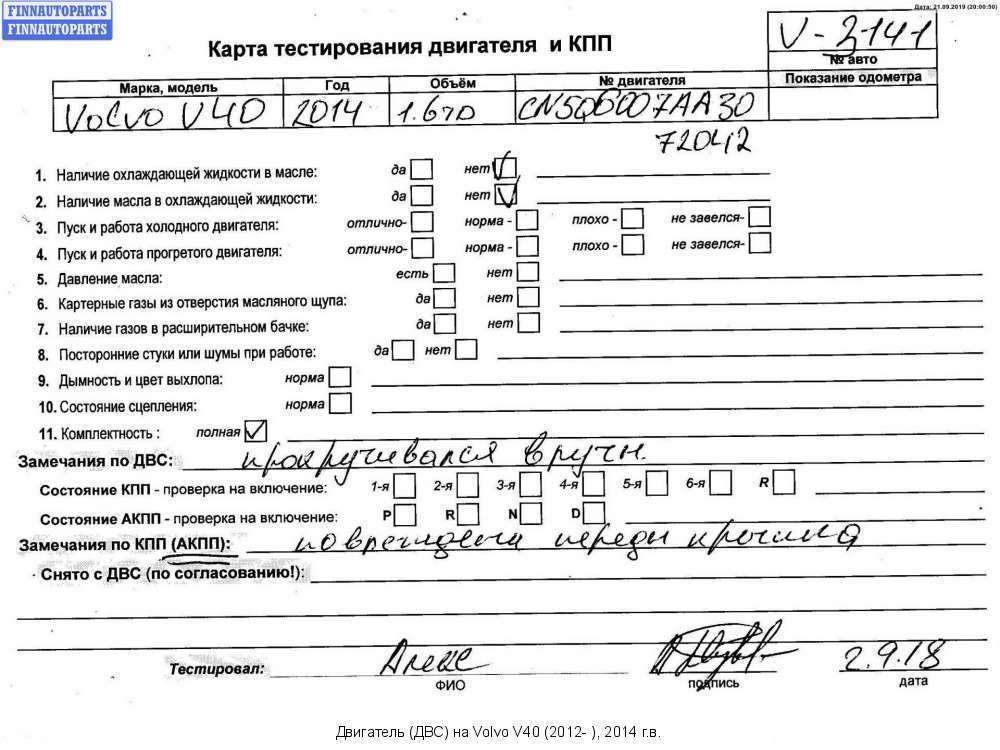 FINNAUTOPARTS
FINNAUTOPARTS
Дата: 21.09.2019 (20:00:50)
V-3141
№ авто
Карта тестирования двигателя и КПП
Марка, модель Год Объём № двигателя Показание одометра
Volvo V40 2014 1.6TD CN5Q6007AA30
72042
1. Наличие охлаждающей жидкости в масле: да нет
2. Наличие масла в охлаждающей жидкости: да нет
3. Пуск и работа холодного двигателя: отлично- норма - плохо - не завелся-
4. Пуск и работа прогретого двигателя: отлично- норма - плохо - не завелся-
5. Давление масла: есть нет
6. Картерные газы из отверстия масляного щупа: да нет
7. Наличие газов в расширительном бачке: да нет
8. Посторонние стуки или шумы при работе: да нет
9. Дымность и цвет выхлопа: норма
10. Состояние сцепления: норма
11. Комплектность : полная
Замечания по ДВС: прокручивался вручн.
Состояние КПП - проверка на включение: 1-я 2-я 3-я 4-я 5-я 6-я R
Состояние АКПП - проверка на включение: P R N D
Замечания по КПП (АКПП): повреждена передн крышка
Снято с ДВС (по согласованию!):
Тестировал: Алекс 2.9.18
ФИО подпись дата
Двигатель (ДВС) на Volvo V40 (2012- ), 2014 г.в.